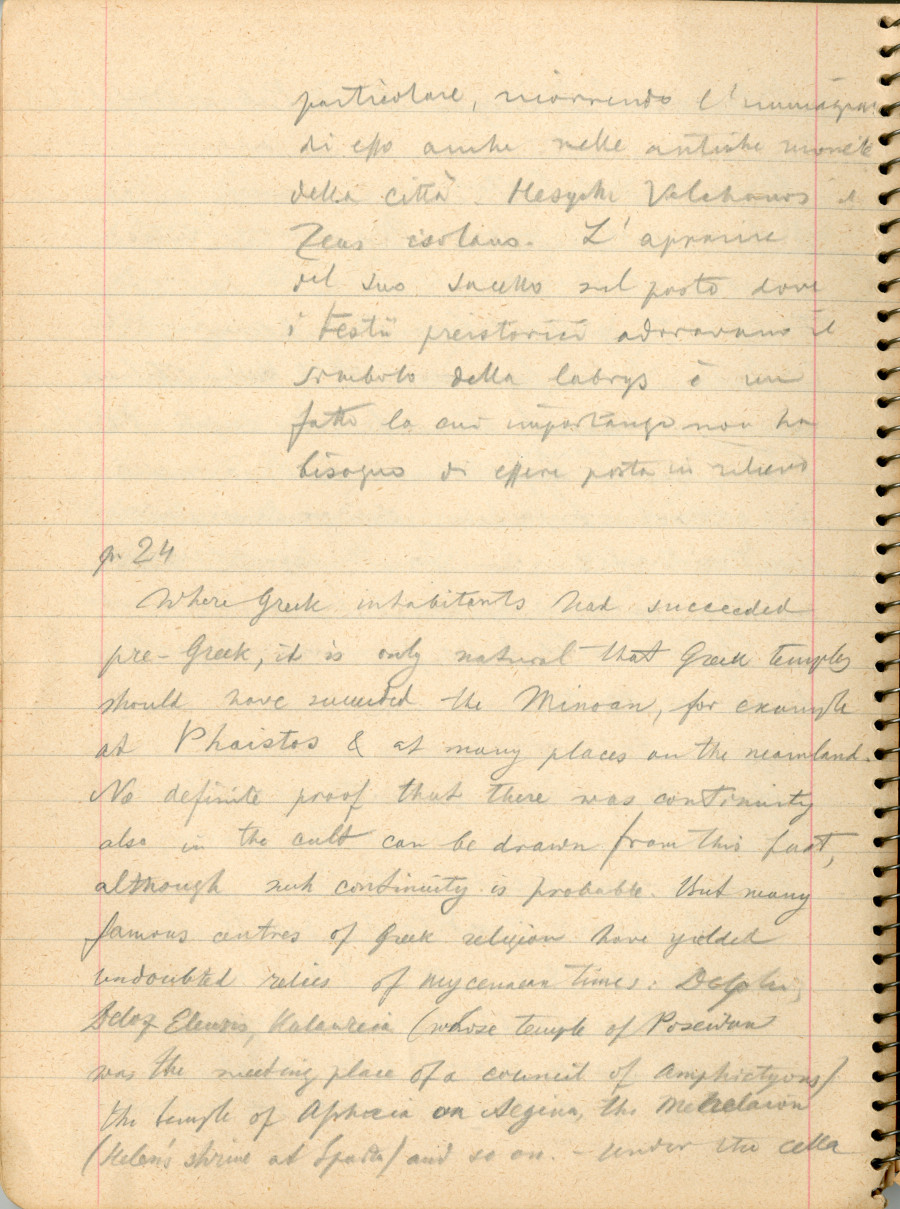 particolare, ricorrendo l'immagine
di esso anche nelle antiche monete
della città. Hesych. Velchanos è
Zeus isolano. L'apparire
del suo sacello sul posto dove
i preistorici adoravano il
simbolo della labrys è un
fatto la cui importanza non ha
bisogno di essere posta in rilievo
p. 24
Where Greek inhabitants had succeeded
pre-Greek, it is only natural that Greek temples
should have succeeded the Minoan, for example
at Phaistos & at many places on the mainland.
No definite proof that there was continuity
also in the cult can be drawn from this fact,
although such continuity is probable. But many
famous centres of Greek religion have yielded
undoubted relics of Mycenaean times: Delphi,
Delos, Eleusis, Kalaureia (whose temple of Poseidon
was the meeting place of a council of Amphictyons)
the temple of Aphaia on Aegina, the Menelaion
(Helen's shrine at Sparta) and so on. - Under the cella